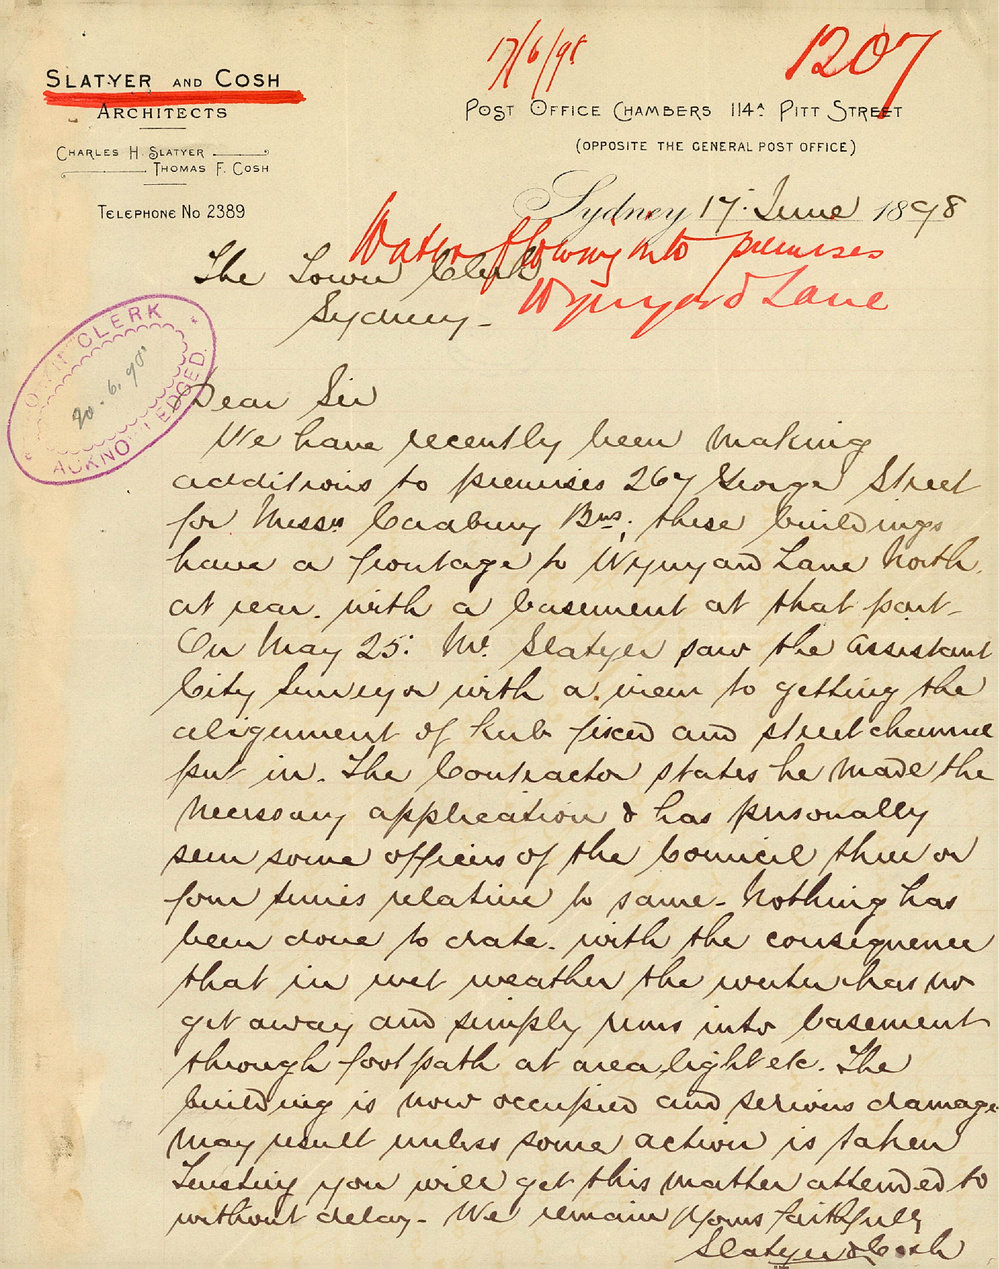 17/6/98
1207
SLATYER AND COSH
ARCHITECTS
CHARLES H. SLATYER
THOMAS F. COSH
TELEPHONE No 2389
POST OFFICE CHAMBERS 114A PITT STREET
(OPPOSITE THE GENERAL POST OFFICE)
Sydney 17. June 1898
Water flowing into premises
Wynyard Lane
The Town Clerk
Sydney -
TOWN CLERK
20.6.98
ACKNOWLEDGED.
Dear Sir
We have recently been making
additions to premises 267 George Street
for Messrs Cadbury Bros; these buildings
have a frontage to Wynyard Lane North,
at rear. with a basement at that part -
On May 25: Mr. Slatyer saw the Assistant
City Surveyor with a view to getting the
alignment of kerb fixed and street channel
put in. The Contractor states he made the
necessary application & has personally
seen some officers of the Council three or
four times relative to same - Nothing has
been done to date. with the consequence
that in wet weather the water has no
get away and simply runs into basement
through footpath at area, light etc. The
building is now occupied and serious damage
may result unless some action is taken
Trusting you will get this matter attended to
without delay - We remain Yours faithfully
Slatyer & Cosh